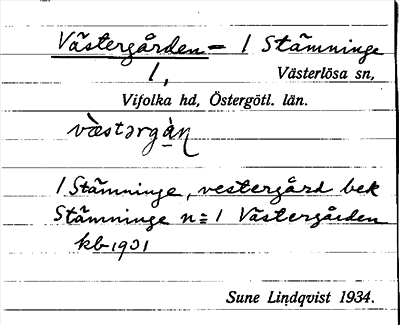 Västergården = 1 Stämninge
1,
Västerlösa sn,
Vifolka hd, Östergötl. län.
væ̀stərgàṇ
1 Stämninge, vestergård bek
Stämninge n = 1 Västergården
kb 1901
Sune Lindqvist 1934.